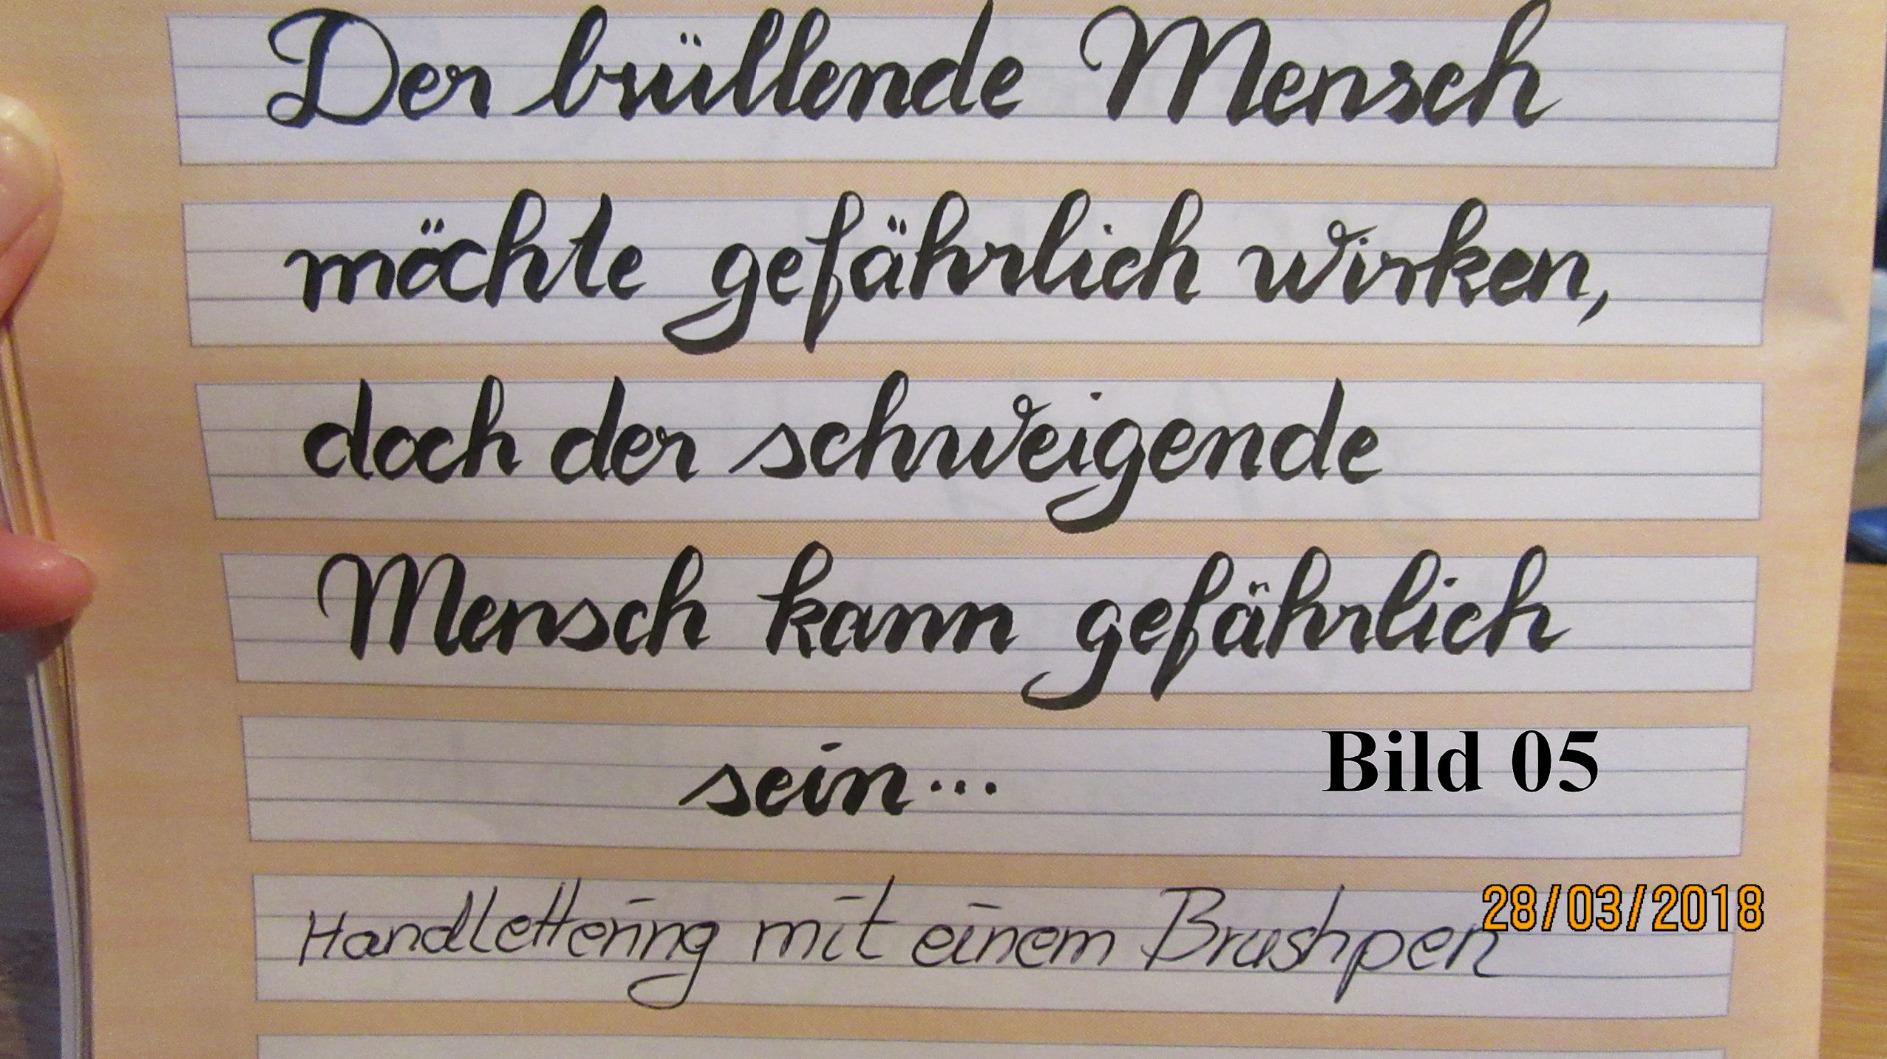 Der brüllende Mensch
möchte gefährlich wirken,
doch der schweigende
Mensch kann gefährlich
sein...
Bild 05
28/03/2018
Handlettering mit einem Brushpen